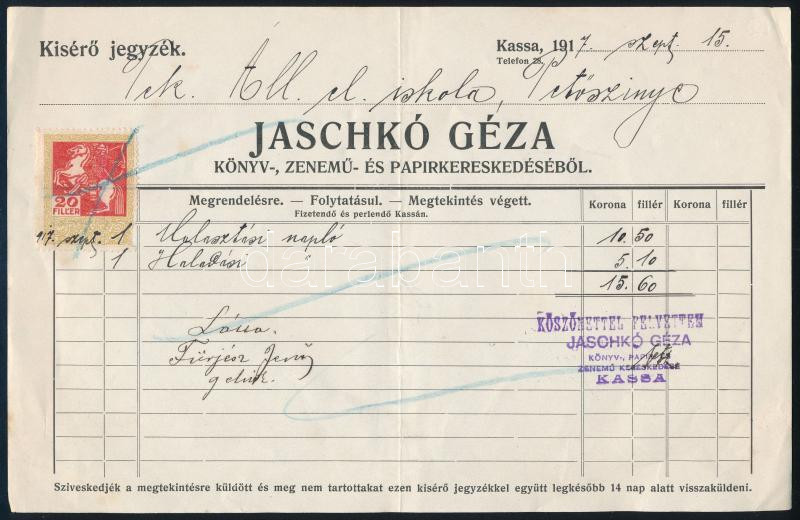 Kisérő jegyzék.
Kassa, 1917. szept. 15.
Telefon 28.
Tek. Áll. el. iskola, Petőszinye
JASCHKÓ GÉZA
KÖNYV-, ZENEMŰ- ÉS PAPIRKERESKEDÉSÉBŐL.
20
FILLÉR
Megrendelésre. — Folytatásul. — Megtekintés végett.
Fizetendő és perlendő Kassán.
Korona fillér Korona fillér
917. szept. 1 Mulasztási napló 10.50
1 Haladási " 5.10
15.60
darabanth
Láttam
Fürjész Jenő
KÖSZÖNETTEL FELVETTEM
JASCHKÓ GÉZA
KÖNYV-, PAPIR ÉS
ZENEMŰ KERESKEDÉSE
KASSA
Sziveskedjék a megtekintésre küldött és meg nem tartottakat ezen kisérő jegyzékkel együtt legkésőbb 14 nap alatt visszaküldeni.